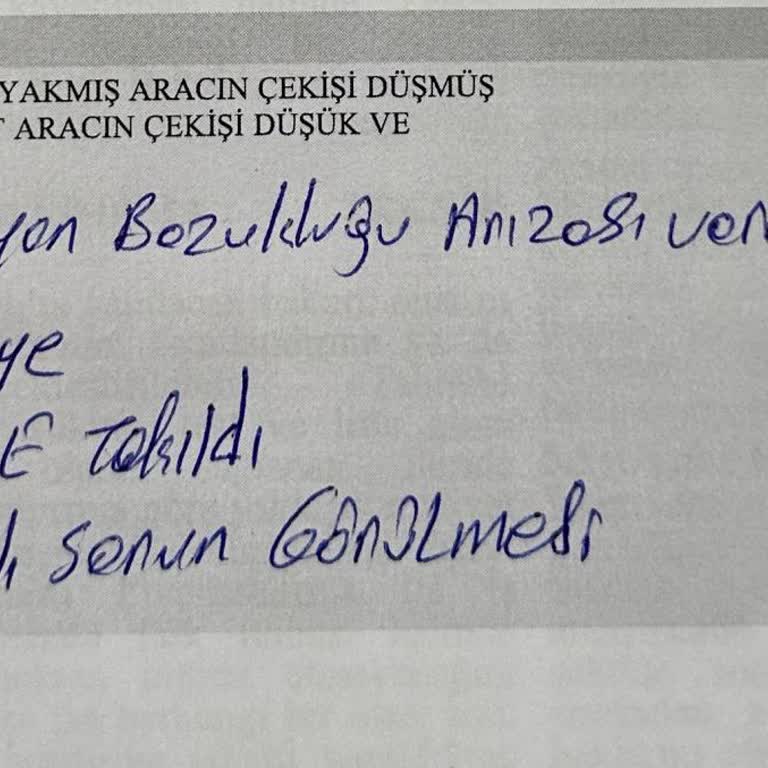 YAKMIŞ ARACIN ÇEKİŞİ DÜŞMÜŞ
ARACIN ÇEKİŞİ DÜŞÜK VE
yon Bozukluğu Arızası ver
ye
E Takıldı
sorun Görülmedi